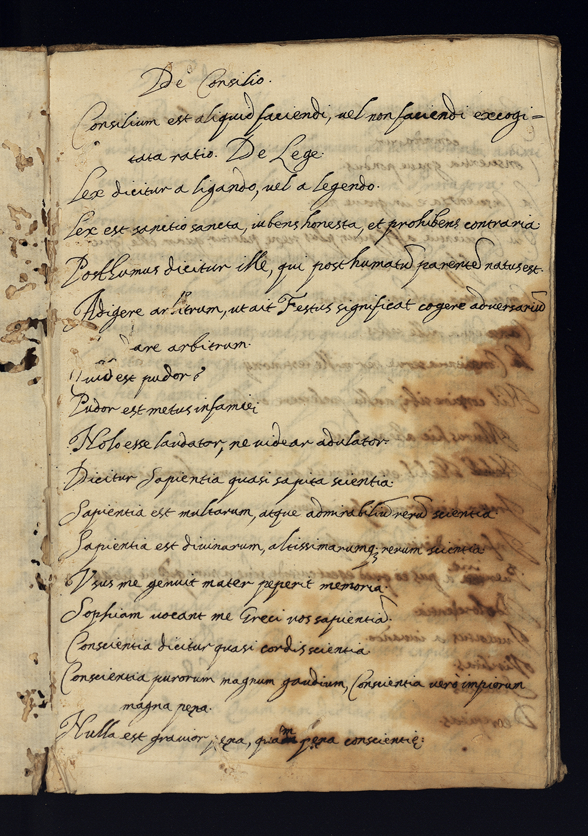 De Consilio.
Consilium est aliquid faciendi, uel non faciendi excogi=
tata ratio. De Lege
Lex dicitur a ligando, uel a legendo.
Lex est sanctio sancta, iubens honesta, et prohibens contraria
Posthumus dicitur ille, qui post humatũ parentẽ natus est.
Adigere arbitrum, ut ait Festus significat cogere adversariũ
are arbitrum.
Quid est pudor?
Pudor est metus infamiȩ
Nolo esse laudator, ne uidear adulator
Dicitur Sapientia quasi sapita scientia.
Sapientia est multarum, atque admirabiliũ rerũ scientia
Sapientia est divinarum, altissimarumq; rerum scientia
Vsus me genuit mater peperit memoria.
Sophiam uocant me Greci uos sapientiã.
Conscientia dicitur quasi cordis scientia
Conscientia purorum magnum gaudium, Conscientia uerò impiorum
magna pȩna.
Nulla est gravior pȩna, quam pȩna conscientiȩ: